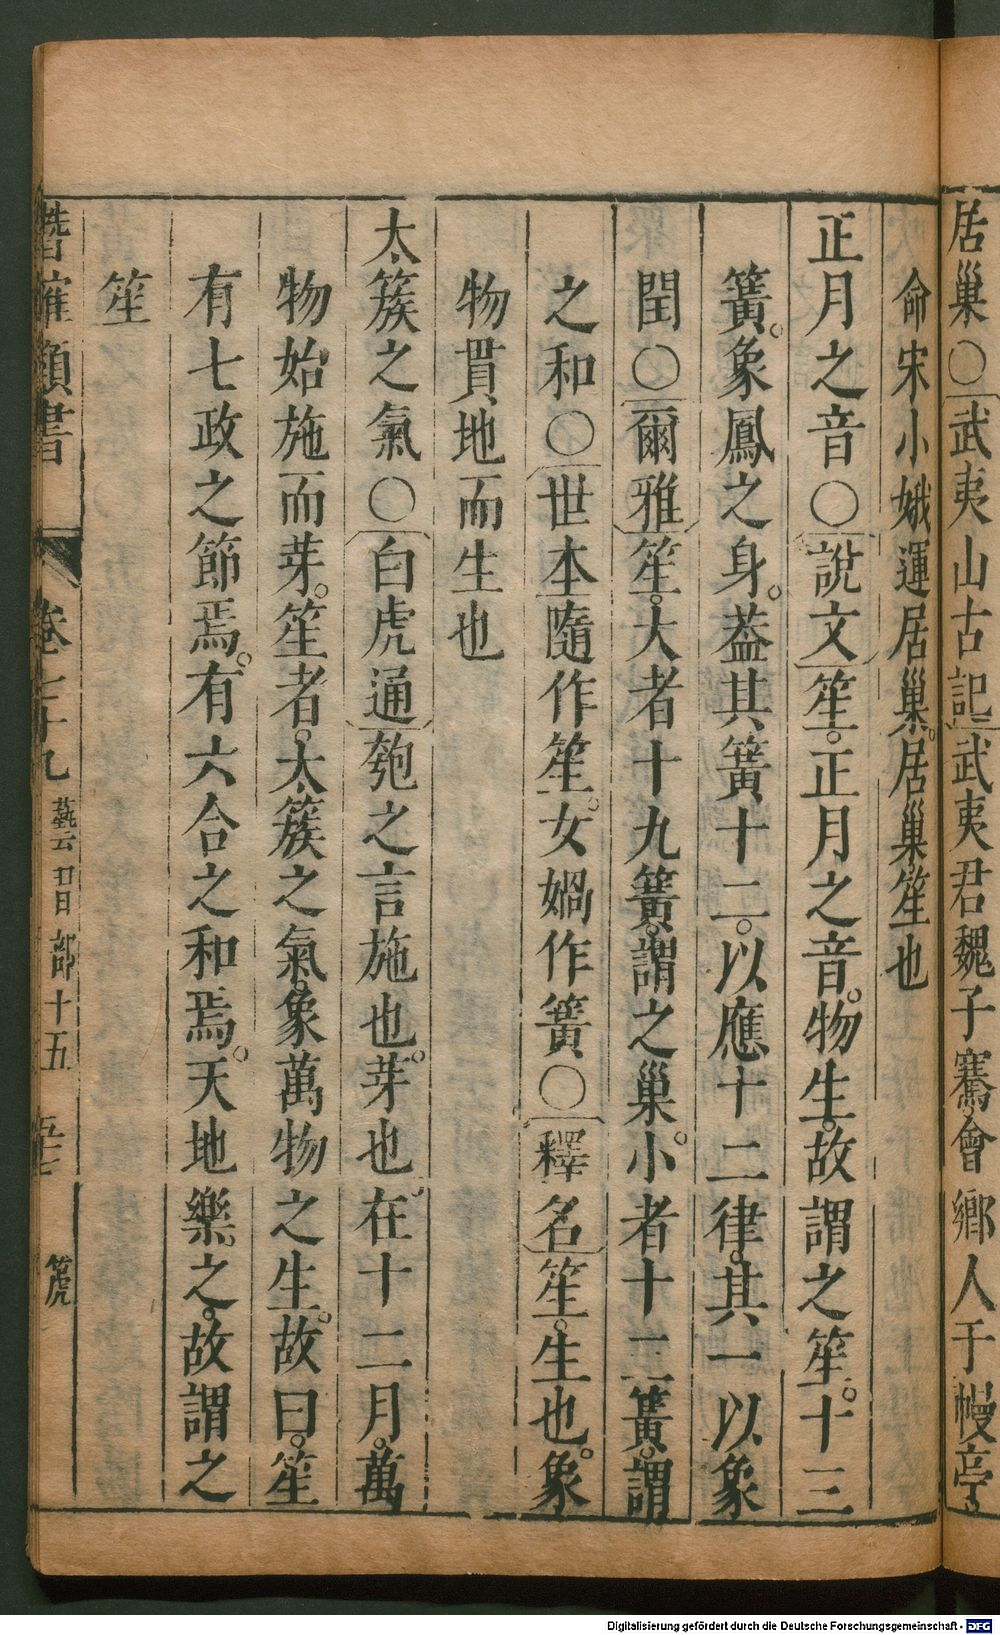 居巢○武夷山古記武夷君魏子騫會鄉人于幔亭
命宋小娥運居巢。居巢。笙也
正月之音○說文笙。正月之音。物生。故謂之笙。十三
簧。象鳳之身。葢其簧十二。以應十二律。其一以象
閏○爾雅笙。大者十九簧。謂之巢。小者十二簧。謂
之和○世本隨作笙。女媧作簧○釋名笙。生也。象
物貫地而生也
太簇之氣○白虎通匏之言施也。芽也。在十二月。萬
物始施而芽。笙者。太簇之氣。象萬物之生。故曰。笙
有七政之節焉。有六合之和焉。天地樂之。故謂之
笙
類書 卷七十九 部十五 箎
Digitalisierung gefördert durch die Deutsche Forschungsgemeinschaft - DFG